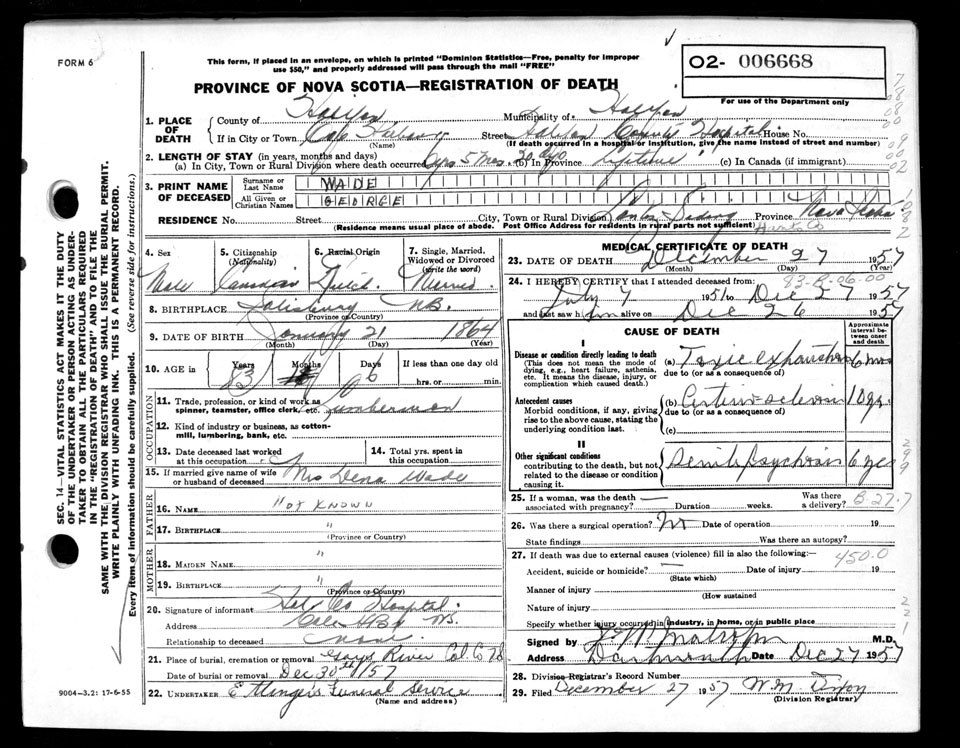 FORM 6
This form, if placed in an envelope, on which is printed "Dominion Statistics—Free, penalty for improper
use $50," and properly addressed will pass through the mail "FREE"
O2- 006668
For use of the Department only
PROVINCE OF NOVA SCOTIA—REGISTRATION OF DEATH
1. PLACE OF DEATH
County of Halifax Municipality of Halifax
If in City or Town Cole Harbour Street Halifax County Hospital House No.
(Name) (If death occurred in a hospital or institution, give the name instead of street and number)
2. LENGTH OF STAY (in years, months and days)
(a) In City, Town or Rural Division where death occurred 6 yrs. 5 Mos. 20 dys (b) In Province lifetime (c) In Canada (if immigrant)
3. PRINT NAME OF DECEASED
Surname or Last Name WADE
All Given or Christian Names GEORGE
RESIDENCE No. Street City, Town or Rural Division Province Nova Scotia
(Residence means usual place of abode. Post Office Address for residents in rural parts not sufficient) Hants Co
4. Sex
Male
5. Citizenship (Nationality)
Canadian
6. Racial Origin
7. Single, Married, Widowed or Divorced (write the word)
Married
8. BIRTHPLACE Salisbury N.B.
(Province or Country)
9. DATE OF BIRTH January 21 1864
(Month) (Day) (Year)
10. AGE in Years Months Days If less than one day
hrs. or min.
OCCUPATION
11. Trade, profession, or kind of work as spinner, teamster, office clerk, etc. Lumberman
12. Kind of industry or business, as cotton-mill, lumbering, bank, etc.
13. Date deceased last worked at this occupation
14. Total yrs. spent in this occupation
15. If married give name of wife or husband of deceased Mrs Dena Wade
FATHER
16. NAME "NOT KNOWN
17. BIRTHPLACE "
(Province or Country)
MOTHER
18. MAIDEN NAME "
19. BIRTHPLACE "
(Province or Country)
20. Signature of informant Hal Co Hospital.
Address
Relationship to deceased none.
21. Place of burial, cremation or removal Gays River Col Co NS
Date of burial or removal Dec 30th/57
22. UNDERTAKER Ettinger's Funeral Service
(Name and address)
MEDICAL CERTIFICATE OF DEATH
23. DATE OF DEATH December 27 1957
(Month) (Day) (Year)
83-B-06.00
24. I HEREBY CERTIFY that I attended deceased from:
July 7 1951 to Dec 27 1957
and last saw him alive on Dec 26 1957
CAUSE OF DEATH
Approximate interval between onset and death
I
Disease or condition directly leading to death
(This does not mean the mode of dying, e.g., heart failure, asthenia, etc. It means the disease, injury, or complication which caused death.)
(a) Toxic exhaustion 6 mos
due to (or as a consequence of)
Antecedent causes
Morbid conditions, if any, giving rise to the above cause, stating the underlying condition last.
(b) Arterio-sclerosis 10 yrs.
due to (or as a consequence of)
(c)
II
Other significant conditions
contributing to the death, but not related to the disease or condition causing it.
Senile psychosis 6 yrs
25. If a woman, was the death associated with pregnancy? — Duration weeks. Was there a delivery? B-27.7
26. Was there a surgical operation? No Date of operation 19
State findings Was there an autopsy?
27. If death was due to external causes (violence) fill in also the following:— 450.0
Accident, suicide or homicide? — Date of injury 19
(State which)
Manner of injury
(How sustained
Nature of injury
Specify whether injury occurred in industry, in home, or in public place
Signed by M.D.
Address Dartmouth Date Dec 27 1957
28. Division Registrar's Record Number
29. Filed December 27 1957 W.M.
(Division Registrar)
SEC. 14—VITAL STATISTICS ACT MAKES IT THE DUTY
OF THE UNDERTAKER OR PERSON ACTING AS UNDER-
TAKER TO OBTAIN ALL THE PARTICULARS REQUIRED
IN THE "REGISTRATION OF DEATH" AND TO FILE THE
SAME WITH THE DIVISION REGISTRAR WHO SHALL ISSUE THE BURIAL PERMIT.
WRITE PLAINLY WITH UNFADING INK. THIS IS A PERMANENT RECORD.
Every item of information should be carefully supplied. (See reverse side for instructions.)
9004—3.2: 17-6-55